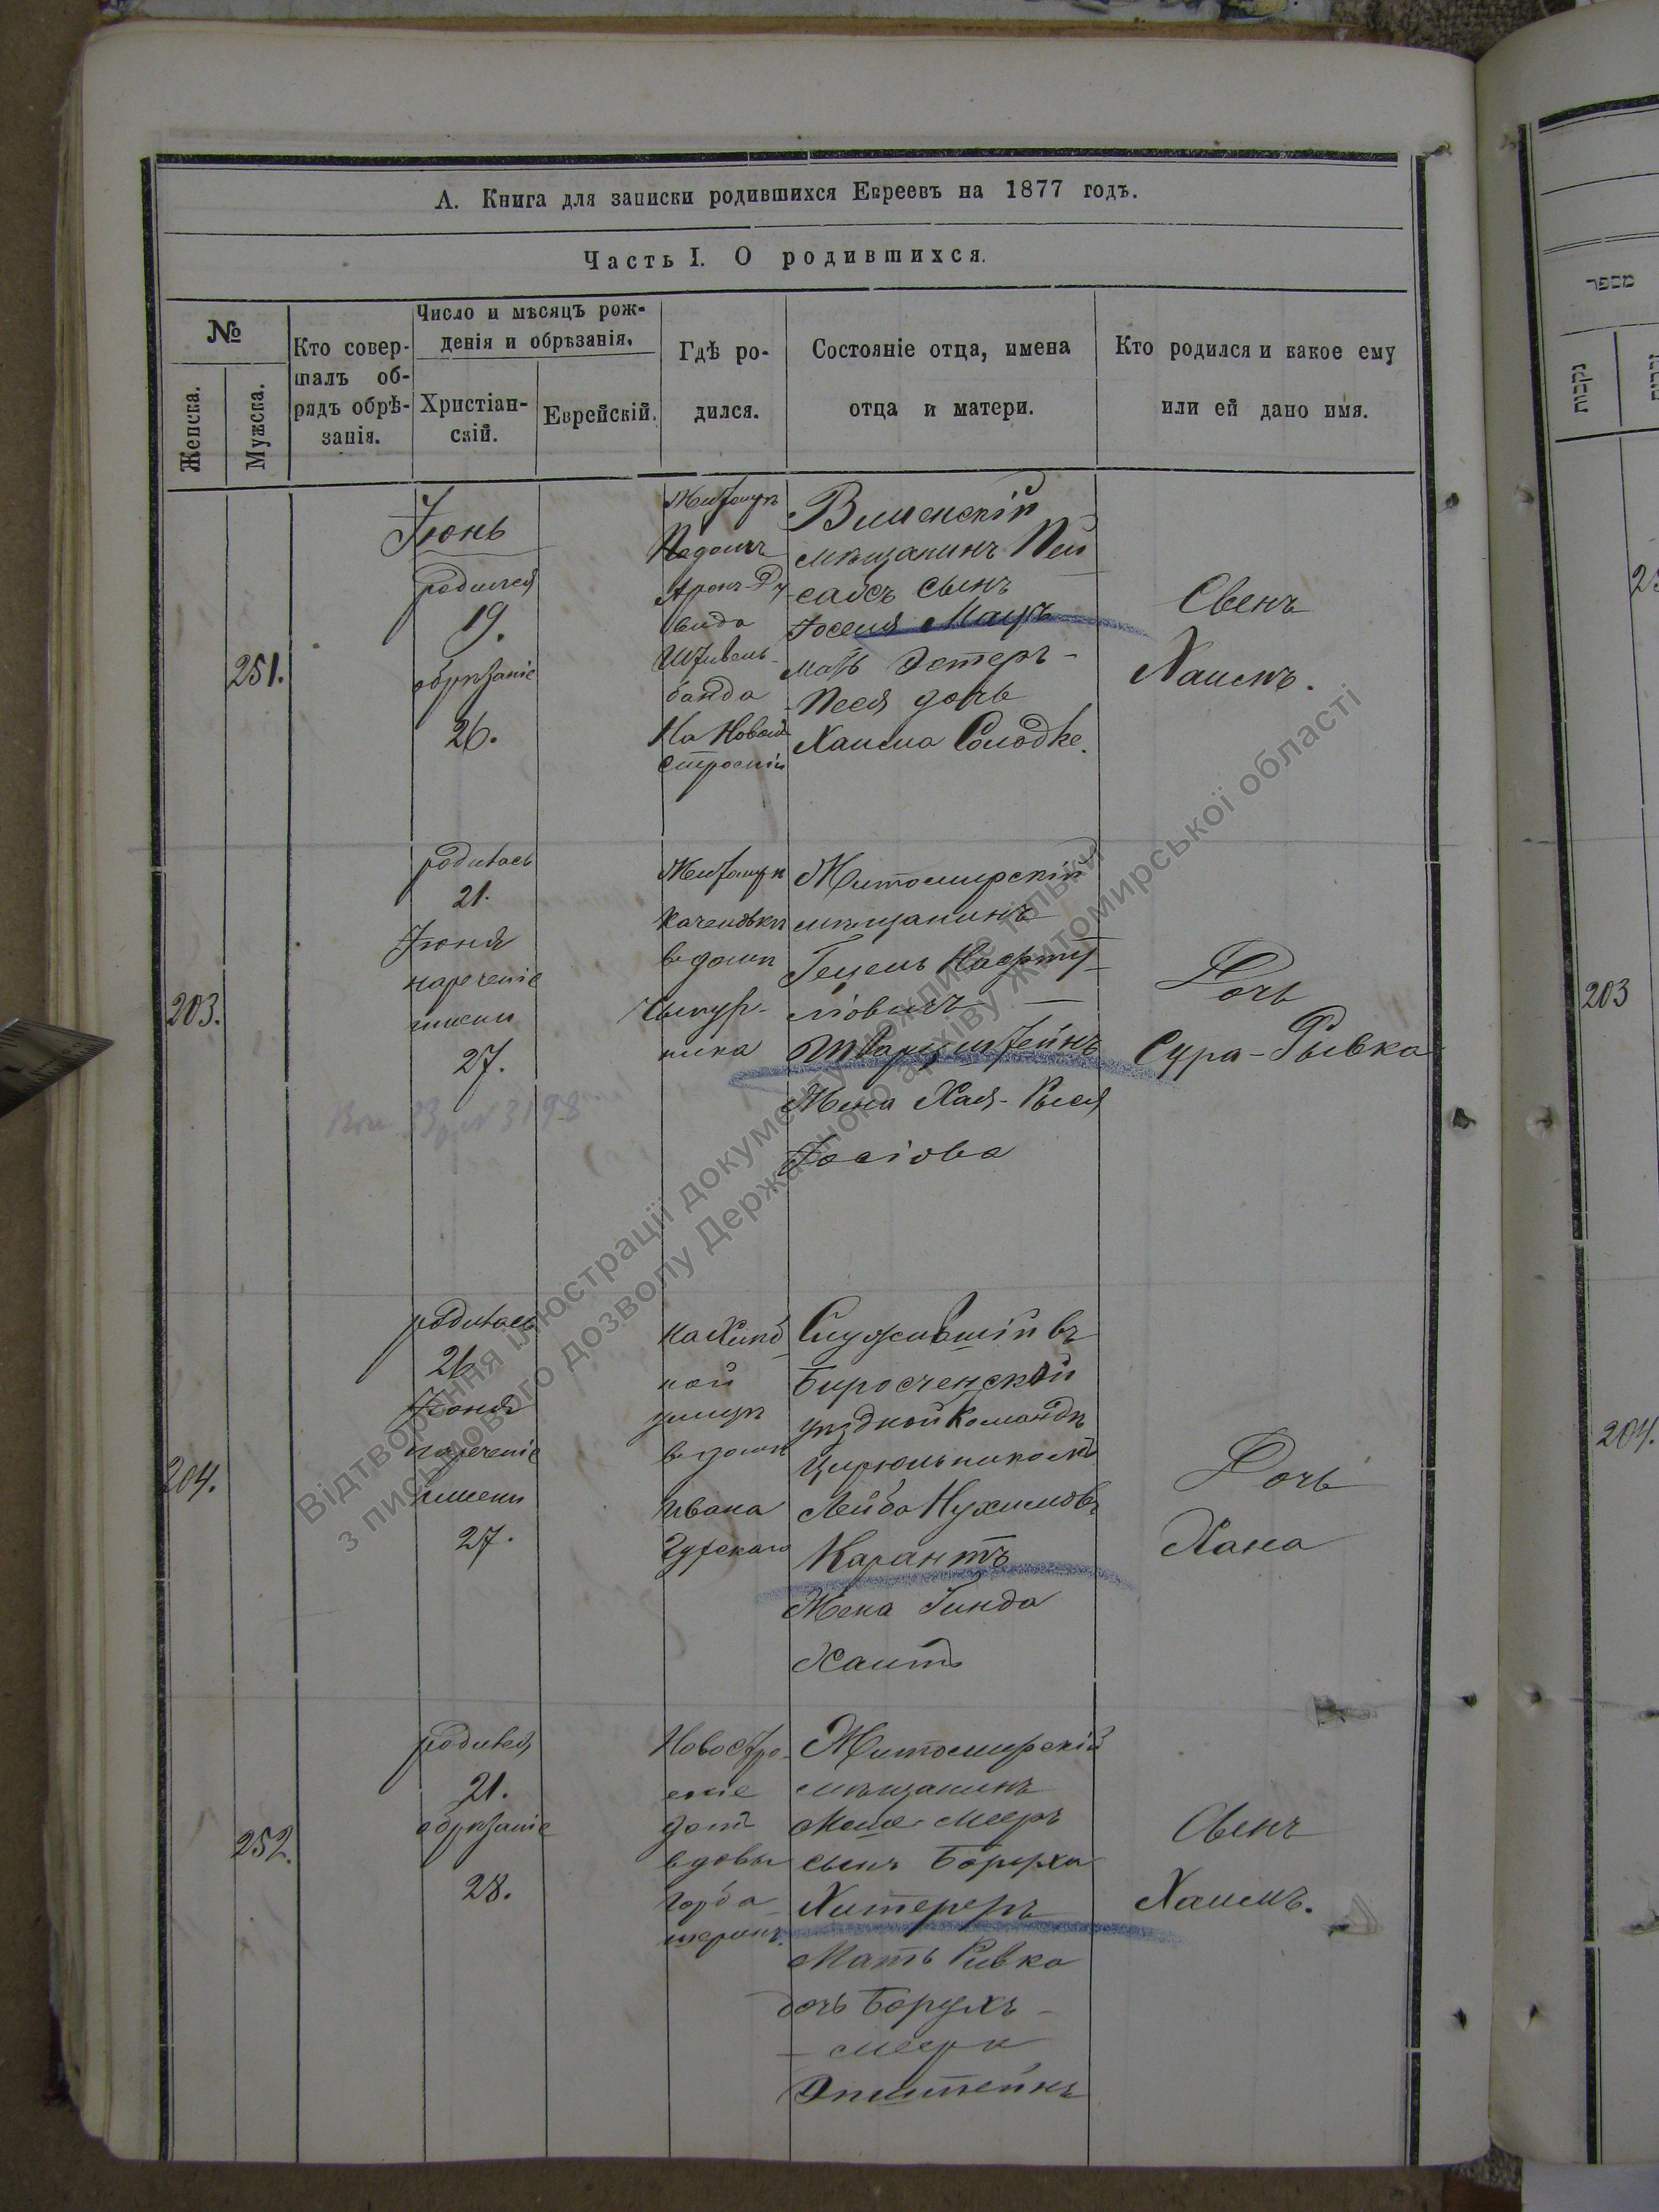 А. Книга для записки родившихся Евреевъ на 1877 годъ.
Часть I. О родившихся.
№
Женска.
Мужска.
Кто совер-
шалъ об-
рядъ обрѣ-
занія.
Число и мѣсяцъ рож-
денія и обрѣзанія.
Христіан-
скій.
Еврейскій.
Гдѣ ро-
дился.
Состояніе отца, имена
отца и матери.
Кто родился и какое ему
или ей дано имя.
251.
Іюнь
родился
19.
обрѣзаніе
26.
Житомѣръ
Арон-Ду
вида
Штивель-
банда
На Новой
строеніи
Виленскій
мѣщанинъ Пей
сахъ сынъ
мать Эстеръ-
Песя дочь
Хаима Солодке.
Сынъ
Хаимъ.
203.
родилась
21.
Іюня
нареченіе
имени
27.
Житомиръ
в домѣ
ника
Житомирскій
мѣщанинъ
Гецель Нафту
ліовичъ —
Шварцштейнъ
Жена Хая-Рыся
Іосіова
Дочь
Сура-Рывка
204.
родилась
26
Іюня
нареченіе
имени
27.
ной
улицѣ
в домѣ
Ивана
Служившій въ
уѣздной командѣ
Цирюльникомъ
Лейба Нухимовъ
Карантъ
Жена Гинда
Хаитъ
Дочь
Хана
252.
родился
21.
обрѣзаніе
28.
Новостро-
еніе
домъ
вдовы
Горба
Житомирскій
мѣщанинъ
Моше-Мееръ
сынъ Боруха
Хитереръ
Мать Ривка
дочь Борухъ-
- меера
Эпштейнъ
Сынъ
Хаимъ.
מספר
נקבות
203
204.
Відтворення ілюстрації документу можливе тільки
з письмового дозволу Державного архіву Житомирської області